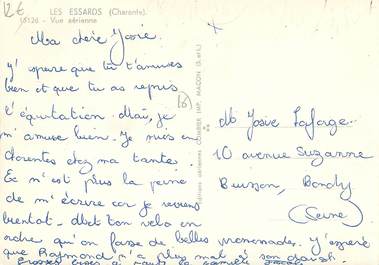 12€
LES ESSARDS (Charente).
16126 - Vue aérienne
Ma chère Josie.
J'espère que tu t'amuses
bien et que tu as repris
l'équitation. Moi, je
m'amuse bien. Je suis en
Charentes chez ma tante.
Ce n'est plus la peine
de m'écrire car je reviens
bientot. Met ton velo en
ordre qu'on fasse de belles promenades. J'espère
que Raymond n'a plus mal à son
Grosses bises à toute la famille
16
Editions aériennes COMBIER IMP. MACON (S.-et-L.)
Josie Lafarge.
10 avenue Suzanne
Buisson, Bondy
(Seine)